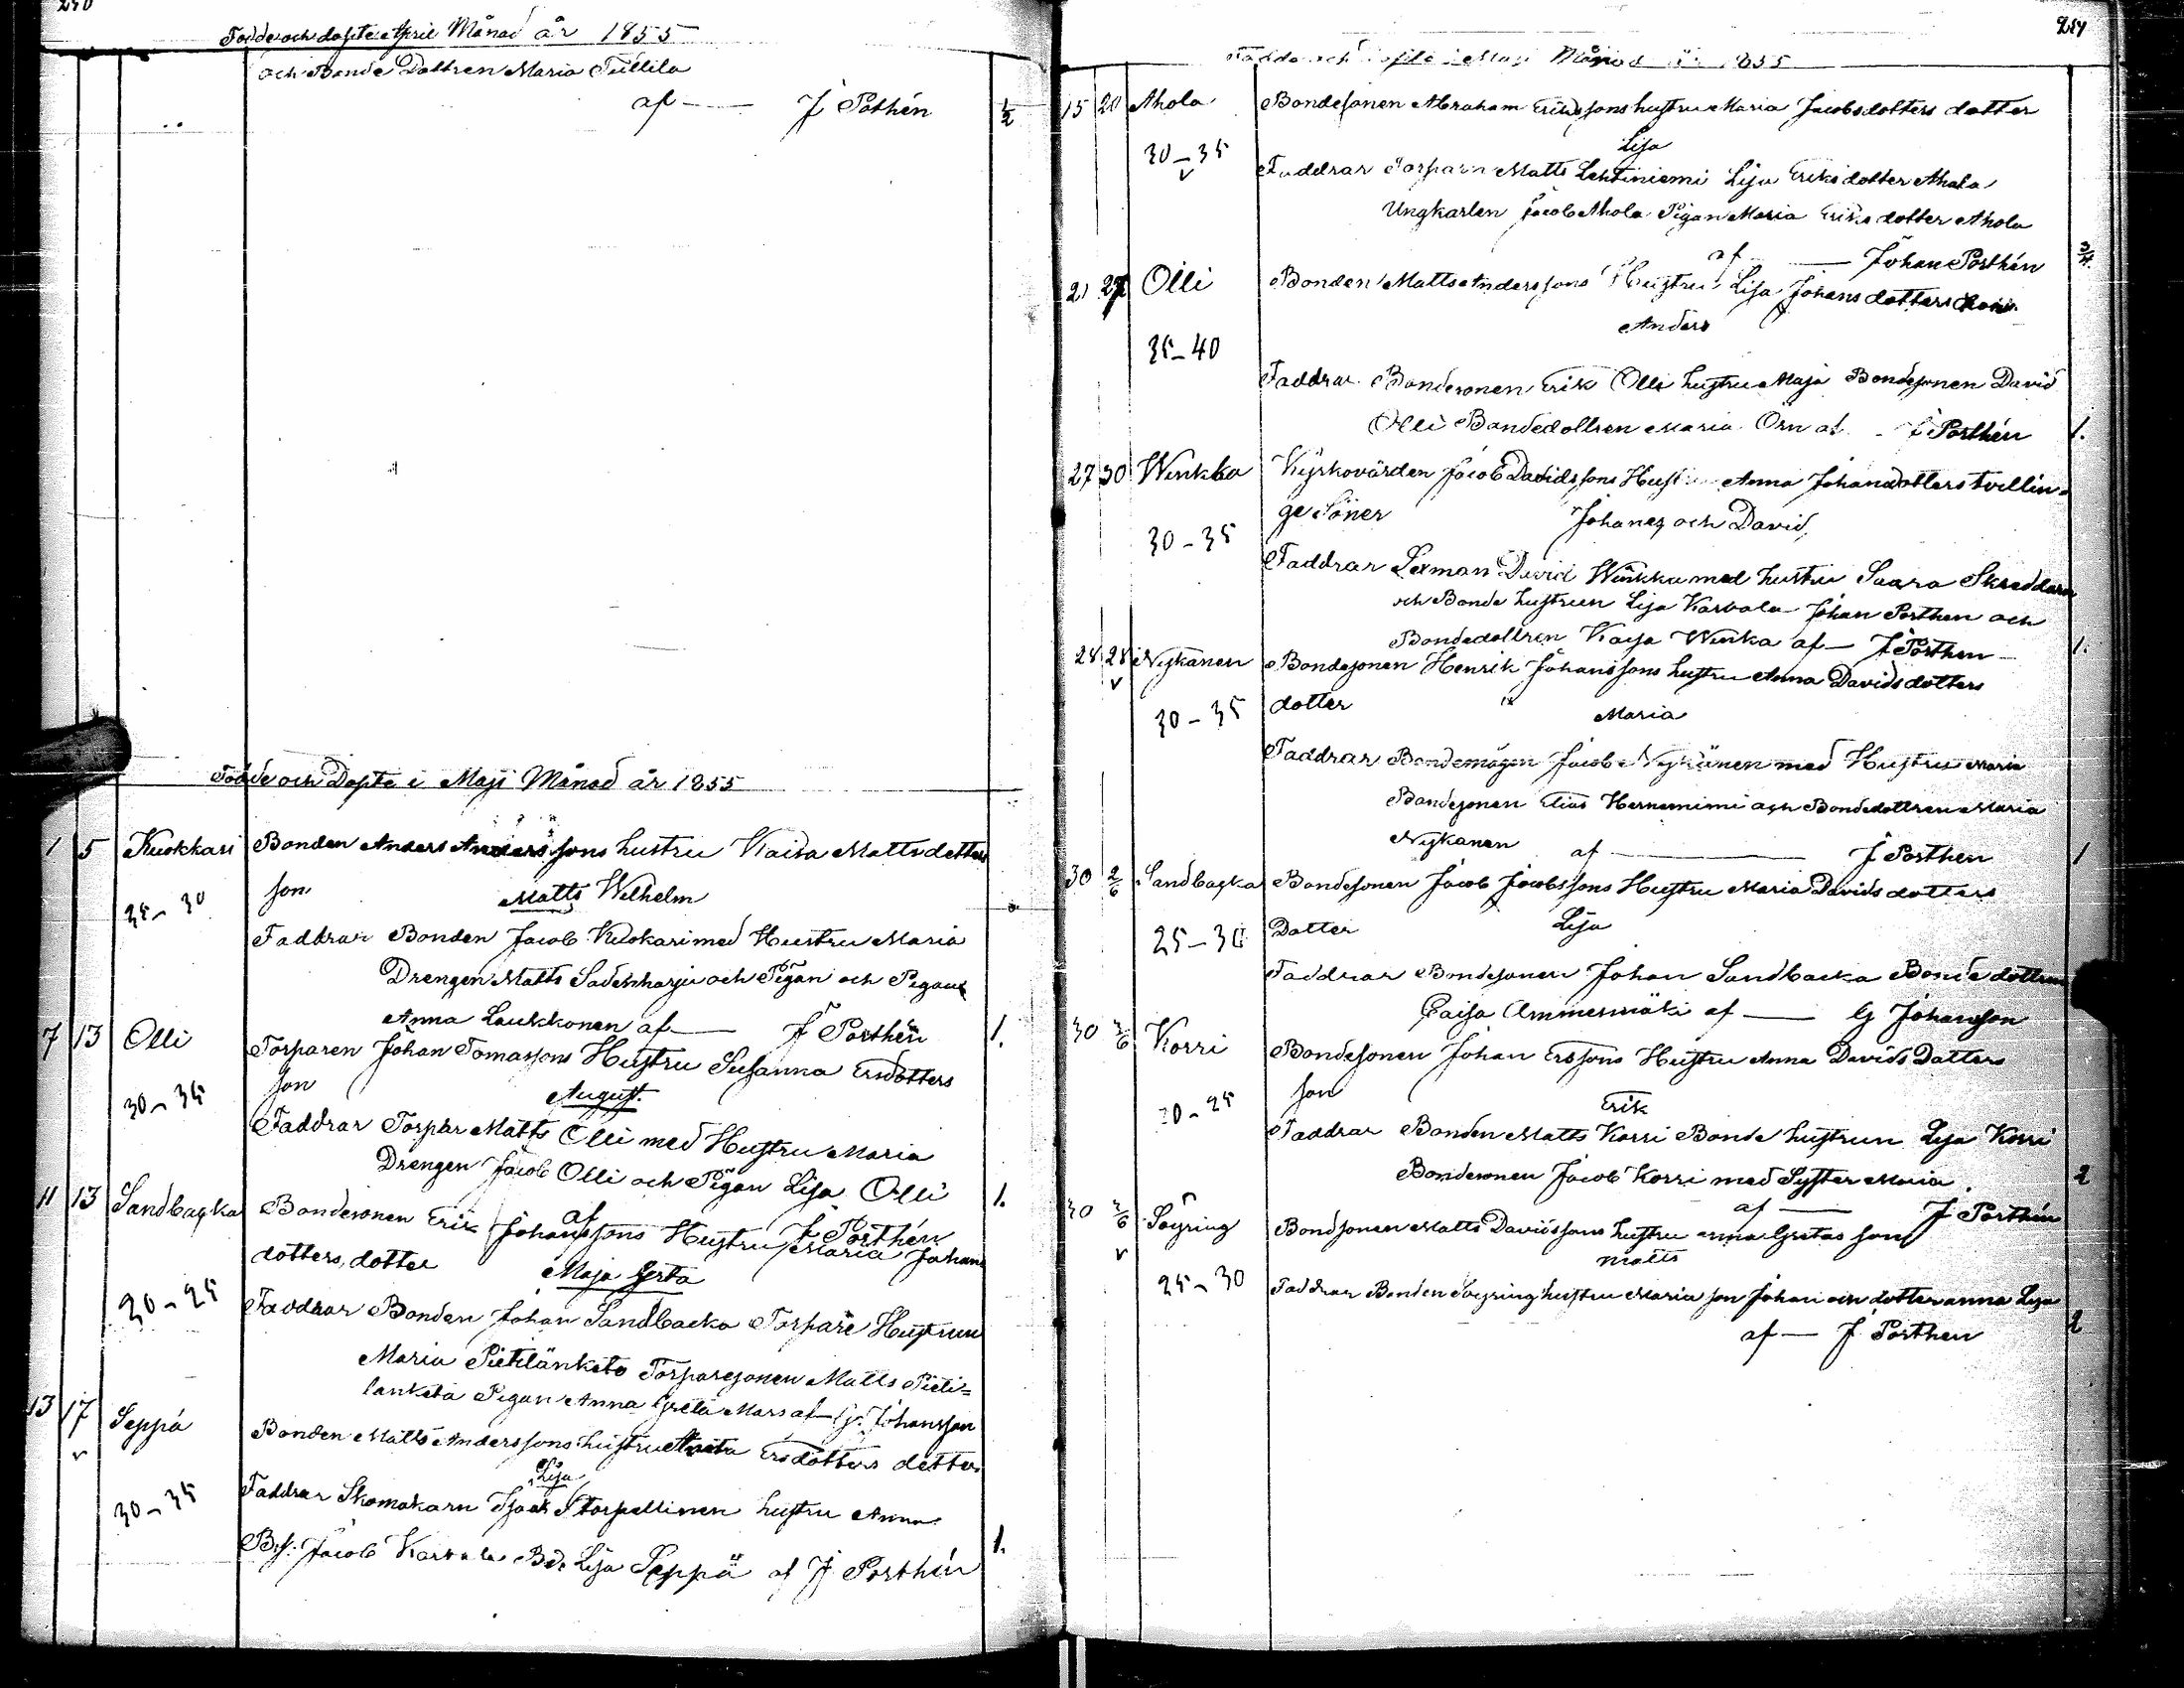 240
Födde och döpte i April Månad år 1855
och Bonde Dottren Maria Tullila
af — J Pothén 1/2
Födde och Döpte i Maji Månad år 1855
1 5 Kuokkari Bonden Anders Anderssons hustru Kaisa Mattsdotters
25-30 son Matts Wilhelm
Faddrar Bonden Jacob Kuokari med Hustru Maria
Drengen Matts Sadenharju och Pigan och Pigans
Anna Laukkonen af — J Porthén 1.
7 13 Olli Torparen Johan Tomassons Hustru Susanna Ersdotters
30-35 son August.
Faddrar Torpar Matts Olli med Hustru Maria
Drengen Jacob Olli och Pigan Lisa Olli 1.
af J Porthén
11 13 Sandbacka Bondesonen Erik Johanssons Hustru Maria Johans
dotters, dotter Maja Greta
20-25 Faddrar Bonden Johan Sandbacka Torpare Hustrun
Maria Pietilänketo Torparesonen Matts Pieti=
lanketa Pigan Anna Greta Mars af G. Johansson
13 17 Seppä Bonden Matts Anderssons hustru Ersdotters dotter
Lisa
30-35 Faddrar Skomakarn Isaak Storpellinen hustru Anna
B.s. Jacob Karvala Bd. Lisa Seppä af J Porthén 1.
Födde och döpte i Maji Månad år 1855
15 20 Ahola Bondesonen Abraham Erikssons hustru Maria Jacobsdotters dotter
Lisa
30-35 Faddrar Torparn Matts Lehtiniemi Lisa Eriksdotter Ahola
Ungkarlen Jacob Ahola Pigan Maria Eriksdotter Ahola
af — Johan Porthén 3/4
21 27 Olli Bonden Matts Anderssons Hustru Lisa Johansdotters son
Anders
35-40
Faddrar Bondesonen Erik Olli hustru Maja Bondesonen David
Olli Bondedottren Maria Örn af J Porthén 1.
27 30 Winkka Kyrkovärden Jacob Davidssons Hustru Anna Johansdotters tvillin-
ge Söner Johanes och David
30-35
Faddrar Lexman David Winkka med hustru Saara Skreddarn
och Bonde hustrun Lisa Karvala Johan Porthen och
Bondedottren Kaisa Winka af — J Porthen 1.
28 28 Nykanen Bondesonen Henrik Johanssons hustru Anna Davidsdotters
30-35 dotter Maria
Faddrar Bondemågen Jacob Nykänen med Hustru Maria
Bondesonen Elias Hernemimi och Bondedottren Maria
Nykanen af — J Porthen 1
30 2/6 Sandbacka Bondesonen Jacob Jacobssons Hustru Maria Davidsdotters
25-30 Dotter Lisa
Faddrar Bondesonen Johan Sandbacka Bondedottren
Caisa Ammesmäki af — G Johansson
30 3/6 Korri Bondesonen Johan Erssons Hustru Anna Davids Dotters
20-25 son Erik
Faddrar Bonden Matts Korri Bonde hustrun Lisa Korri
Bondesonen Jacob Korri med Syster Maria 2
af — J Porthén
30 3/6 Soyring Bondsonen Matts Davidssons hustru Anna Gretas son
Matts
25-30 Faddrar Bonden Soyring hustru Maria son Johan och dotter anna Lisa
af — J Porthen 2